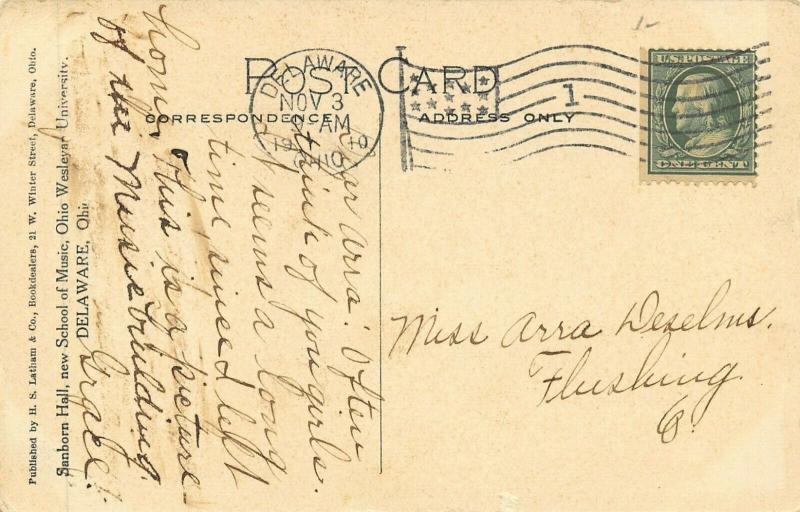 POST CARD
CORRESPONDENCE
ADDRESS ONLY
DELAWARE
NOV 3
AM
1910
OHIO
1
U.S. POSTAGE
ONE CENT
Dear Arra: Often
think of you girls.
It seems a long
time since I left
home. This is a picture
of the Music building.
Grace.
Miss Arra Deselms.
Flushing.
O.
Sanborn Hall, new School of Music, Ohio Wesleyan University.
DELAWARE, Ohio
Published by H. S. Latham & Co., Booksdealers, 21 W. Winter Street, Delaware, Ohio.